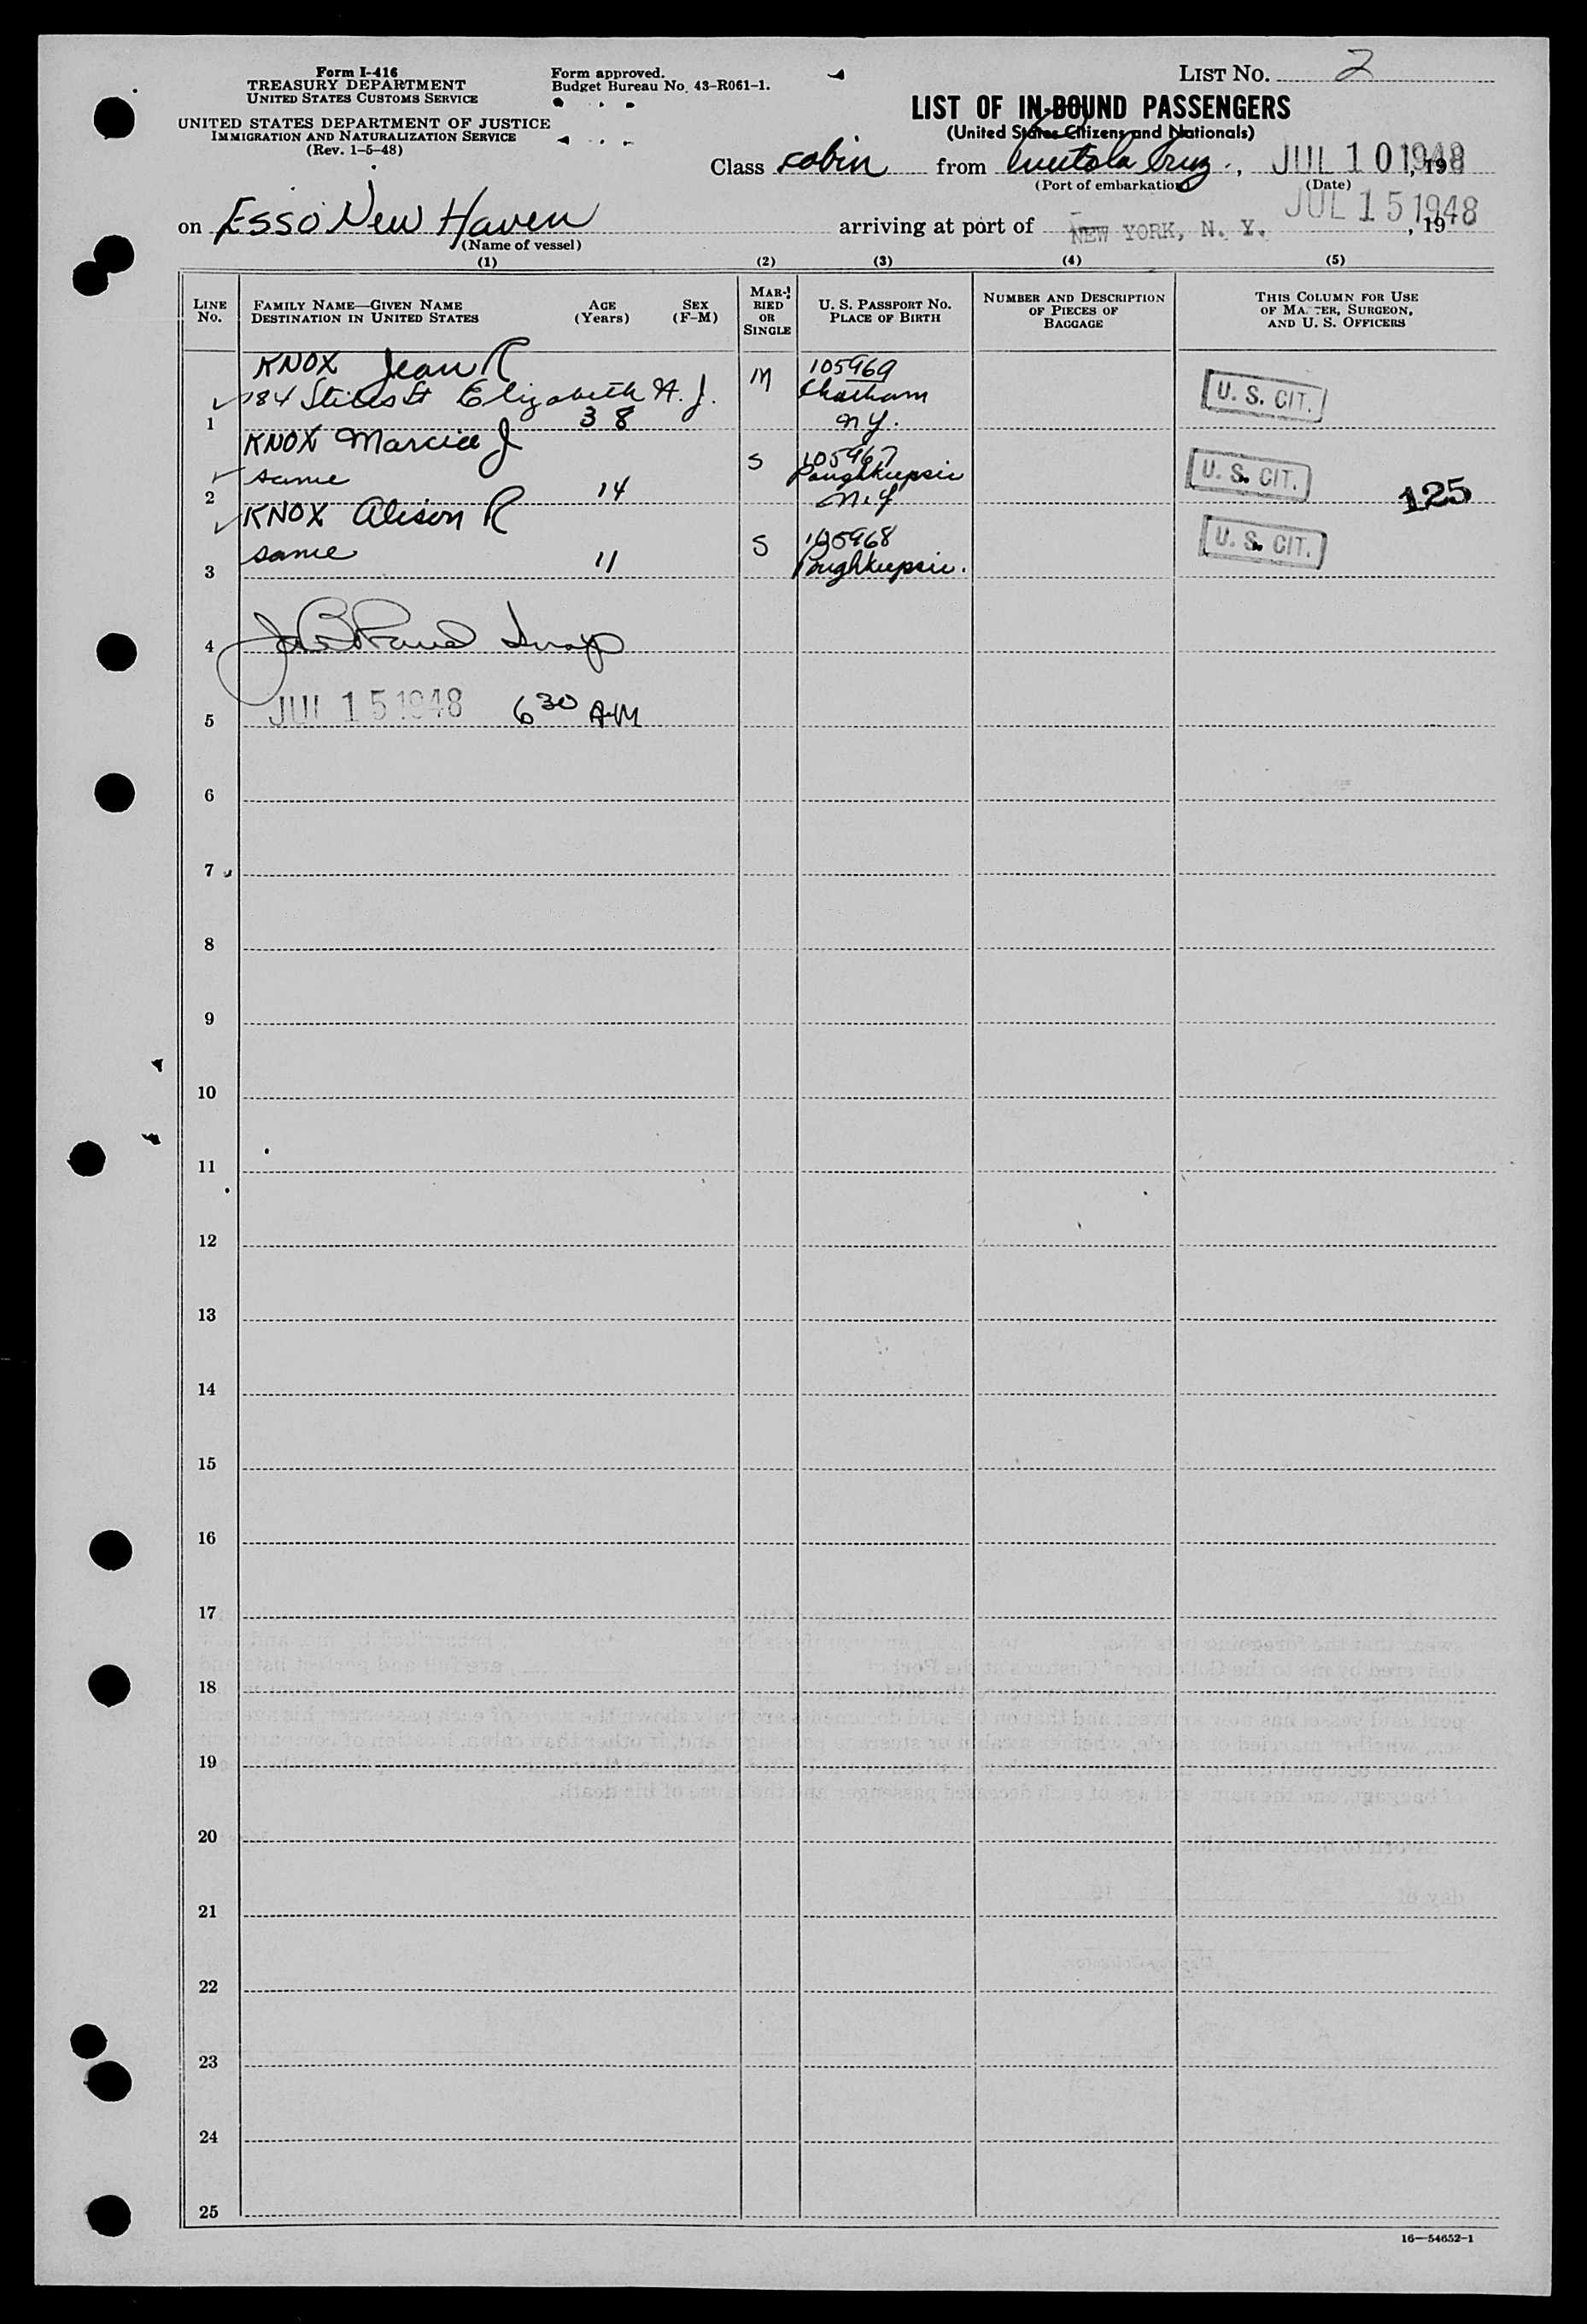 Form I-416
TREASURY DEPARTMENT
UNITED STATES CUSTOMS SERVICE
UNITED STATES DEPARTMENT OF JUSTICE
IMMIGRATION AND NATURALIZATION SERVICE
(Rev. 1-5-48)
Form approved.
Budget Bureau No. 43-R061-1.
LIST NO. 2
LIST OF IN-BOUND PASSENGERS
(United States Citizens and Nationals)
Class cabin from Cruz, JUL 10 1948, 19
(Port of embarkation) (Date)
on Esso New Haven arriving at port of NEW YORK, N. Y. JUL 15 1948, 19
(Name of vessel)
(1) (2) (3) (4) (5)
LINE NO.
FAMILY NAME—GIVEN NAME
DESTINATION IN UNITED STATES
AGE (Years)
SEX (F-M)
MARRIED OR SINGLE
U. S. PASSPORT NO.
PLACE OF BIRTH
NUMBER AND DESCRIPTION OF PIECES OF BAGGAGE
THIS COLUMN FOR USE OF MASTER, SURGEON, AND U. S. OFFICERS
KNOX Jean R M 105969
184 Stiles St Elizabeth N. J. Chatham U. S. CIT.
1 38 N.Y.
KNOX Marcia J S 105967
same Poughkeepsie U. S. CIT.
2 14 N.Y 125
KNOX Alison R S 105968 U. S. CIT.
same Poughkeepsie.
3 11
4 Insp
5 JUL 15 1948 6 30 AM
6
7
8
9
10
11
12
13
14
15
16
17
18
19
20
21
22
23
24
25
16—54652-1